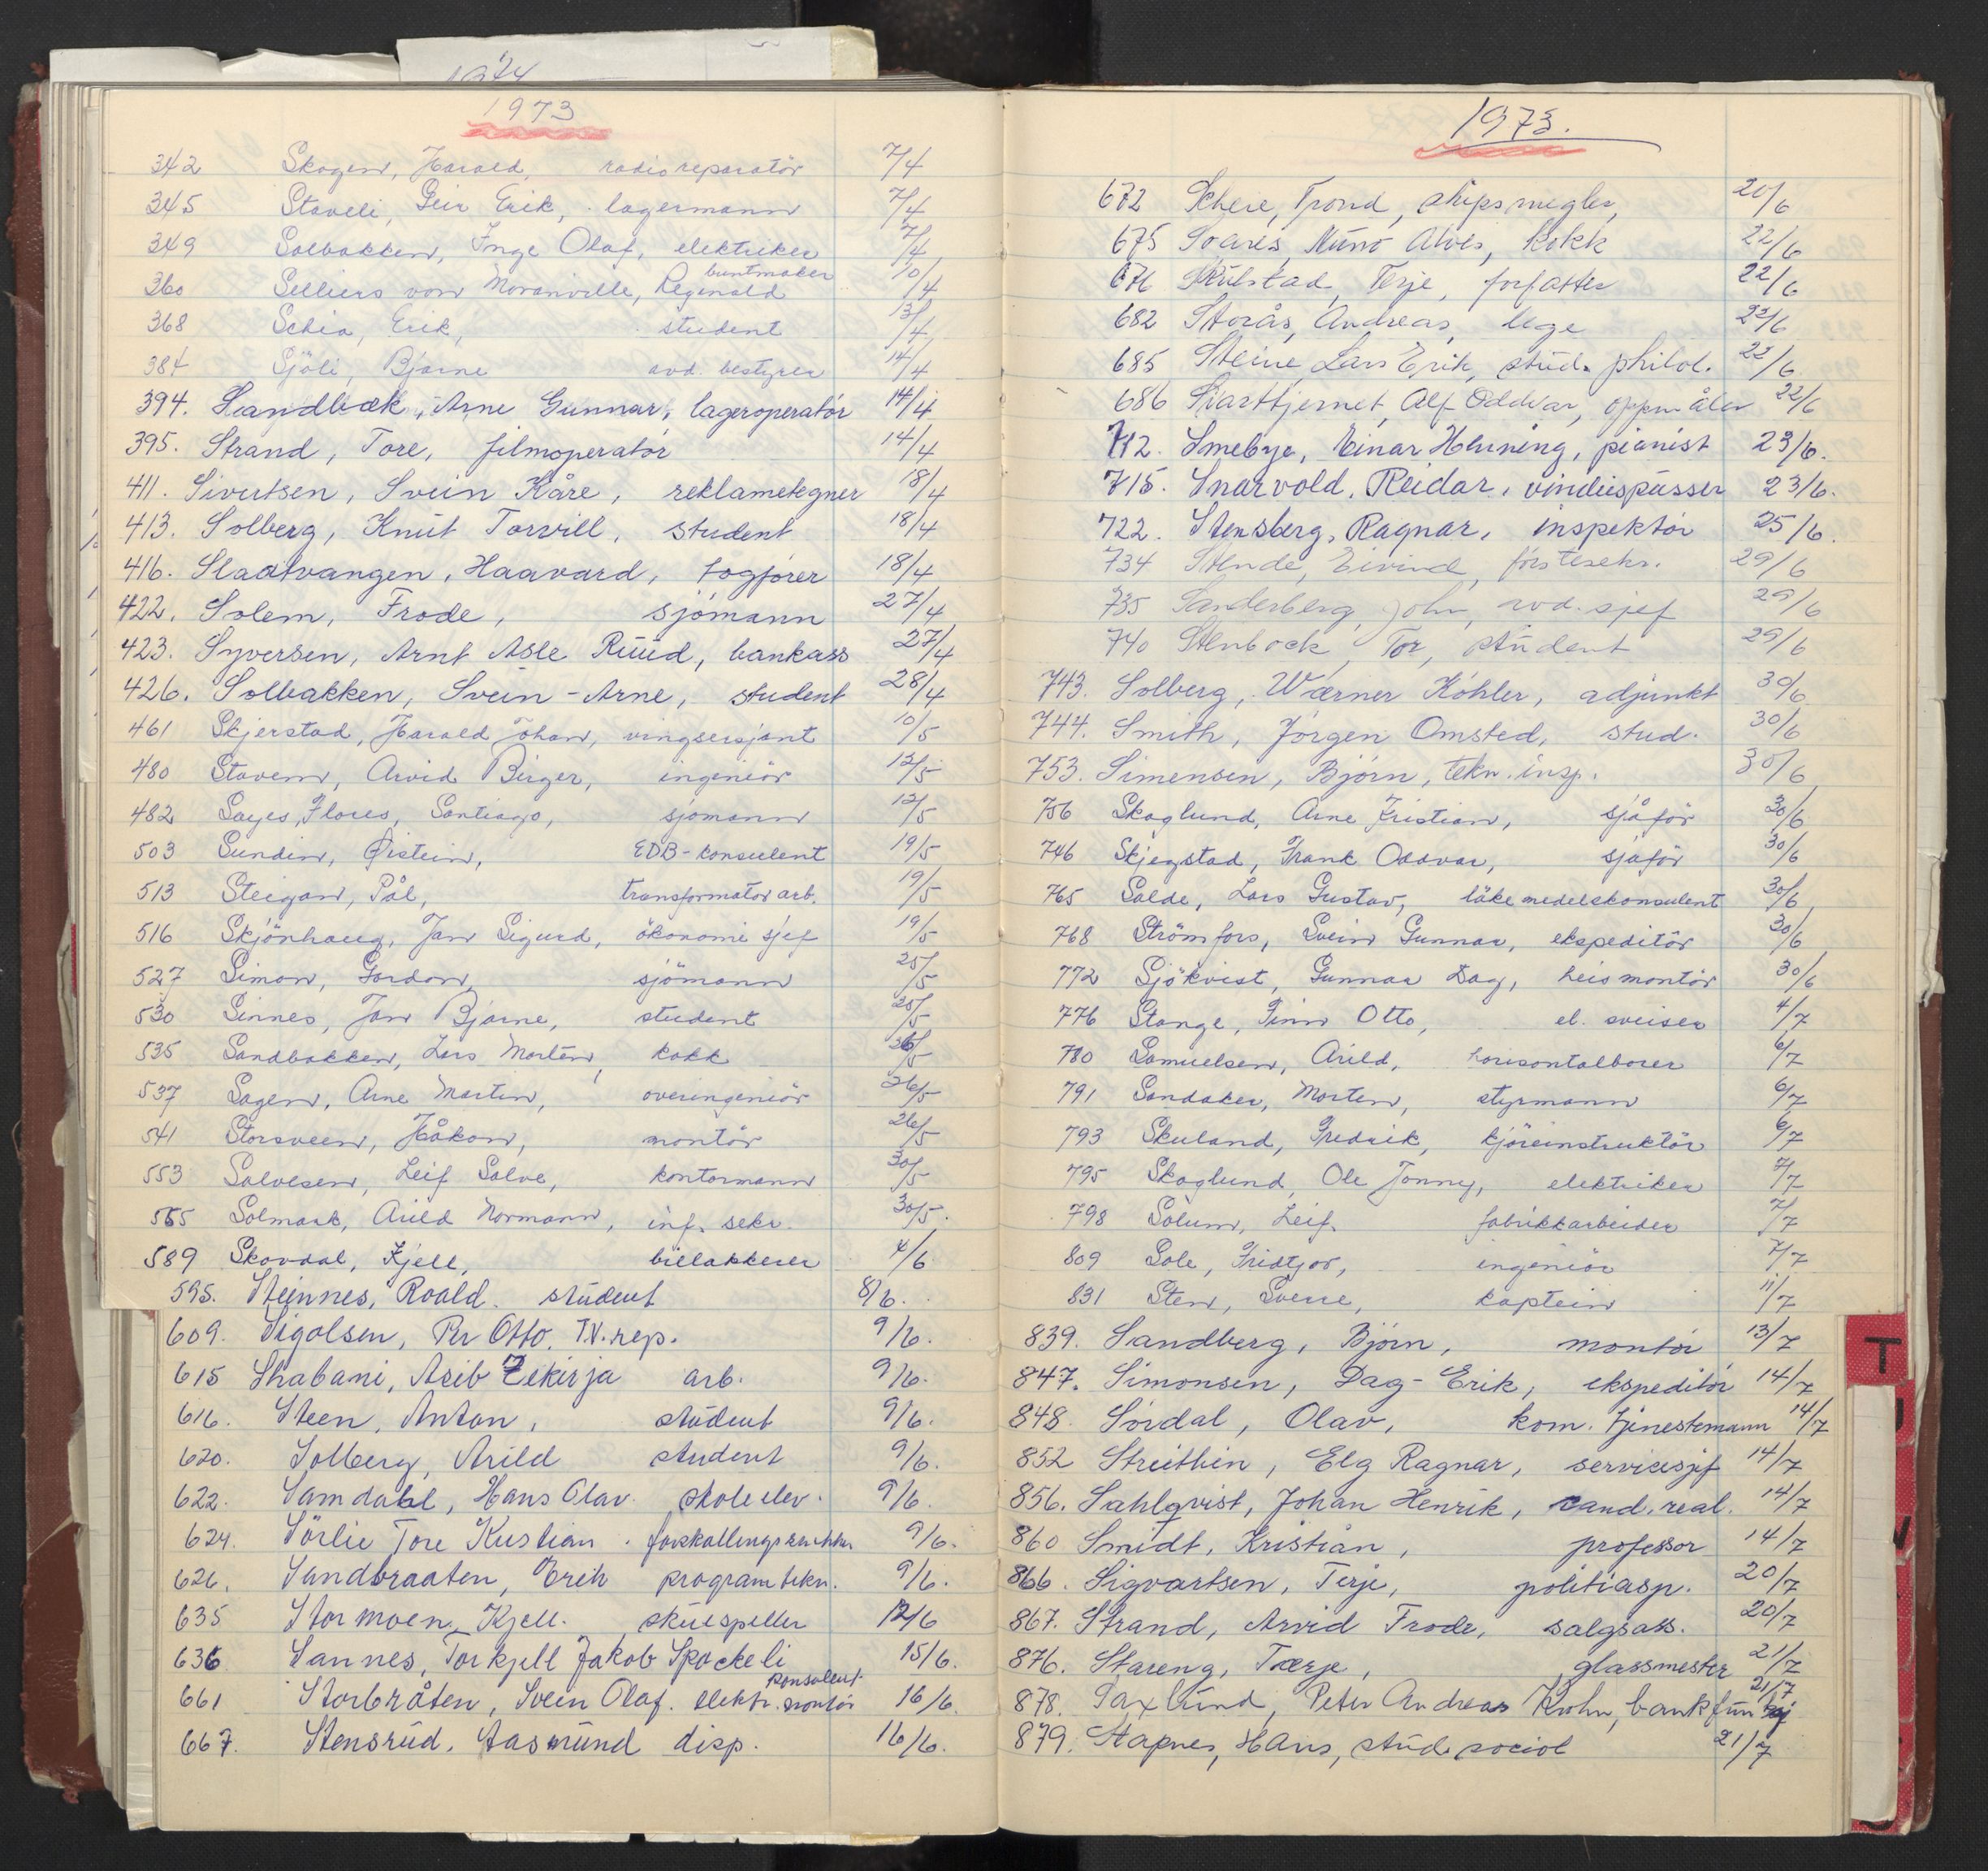 1974
1973
342 Skogen, Harald, radioreparatör 7/4
345 Staveli, Geir Erik, lagermann 7/4
349 Solbakken, Inge Olaf, elektriker 7/4
buntmaker
360 Selliers von Moranville, Reginald 10/4
368 Schia, Erik, student 13/4
384 Sjöli, Bjarne avd. bestyrer 14/4
394. Sandbæk, Arne Gunnar, lageroperatör 14/4
395. Strand, Tore, filmoperatör 14/4
411. Sivertsen, Svein Kåre, reklametegner 18/4
413. Solberg, Knut Torvill, student 18/4
416. Slaatvangen, Haavard, togförer 18/4
422. Solem, Frode, sjömann 27/4
423. Syversen, Arnt Asle Ruud, bankass 27/4
426. Solbakken, Svein-Arne, student 28/4
461 Skjerstad, Harald Johan, vingsersjant 10/5
480 Stavem, Arvid Birger, ingeniör 12/5
482 Sayes, Flores, Santiago, sjömann 12/5
503 Sundin, Øistein, EDB-konsulent 19/5
513 Steigan, Pål, transformator arb. 19/5
516 Skjönhaug, Jan Sigurd, ökonomi sjef 19/5
527 Simon, Gordon, sjömann 25/5
530 Sinnes, Jan Bjarne, student 25/5
535 Sandbakken, Lars Morten, kokk 26/5
537 Sagen, Arne Martin, overingeniör 26/5
541 Storsveen, Håkon, montör 26/5
553 Salvesen, Leif Salve, kontormann 30/5
565 Solmark, Arild Normann, inf. sekr. 30/5.
589 Skovdal, Kjell, billakkerer 4/6
595. Steinnes, Roald. student 8/6.
609. Sigolsen, Per Otto. T.V. rep. 9/6.
615 Shabani, Asib Zekirja arb. 9/6.
616. Steen, Anton, student 9/6.
620. Solberg, Arild student 9/6.
622. Samdahl, Hans Olav. skoleelev. 9/6.
624. Sörlie Tore Kristian . forskallingssnekker 9/6.
626. Sandbraaten, Erik program tekn. 9/6.
635 Stormoen, Kjell. skuespiller 12/6
636 Sannes, Torkjell Jakob Spockeli 15/6.
konsulent
661 Storbråten, Svein Olaf. elektr. montör 16/6.
667. Stensrud, Aasmund disp. 16/6.
1973.
672 Scheie, Trond, skipsmegler, 20/6
675 Soares, Nuno Alves, kokk 22/6
676 Skulstad, Terje, forfatter 22/6
682 Storås, Andreas, lege 22/6
685 Steine Lars Erik, stud. philol. 22/6
686 Svarttjernet, Alf Oddvar, oppmåler 22/6
712. Smebye, Einar Henning, pianist 23/6.
715. Snarvold, Reidar, vinduspusser 23/6.
722. Stensberg, Ragnar, inspektör 25/6.
734 Stende, Eivind, försteseks. 29/6
735 Sanderberg, John, avd. sjef 29/6
740 Stenbock, Tor, student 29/6
743. Solberg, Wærner Köhler, adjunkt 30/6
744. Smith, Jörgen Omsted, stud. 30/6
753. Simensen, Björn, tekn. insp. 30/6
756 Skoglund, Arne Kristian, sjåför 30/6
746 Skjegstad, Frank Oddvar, sjåför 30/6
765 Salde, Lars Gustav, läkemedelskonsulent 30/6
768 Strömfors, Svein Gunnar, ekspeditör 30/6
772 Sjökvist, Gunnar Dag, heismontör 30/6
776 Stange, Finn Otto, el. sveiser 4/7
780 Samuelsen, Arild, horisontalborer 6/7
791 Sandaker, Morten, styrmann 6/7
793 Skuland, Fredrik, kjöreinstruktör 6/7
795 Skoglund, Ole Jonny, elektriker 7/7
798 Solum, Leif, fabrikkarbeider 7/7
809 Sole, Fridtjov, ingeniör 7/7
831 Sten, Sverre, kaptein 11/7
839. Sandberg, Björn, montör 13/7
847. Simonsen, Dag-Erik, ekspeditör 14/7
848. Sördal, Olav, kom. tjenestemann 14/7
852 Streithin, Elg Ragnar, servicesjef 14/7
856. Sahlqvist, Johan Henrik, cand. real. 14/7
860 Smidt, Kristian, professor 14/7
866. Sigvartsen, Terje, politiasp. 20/7
867. Strand, Arvid Frode, salgsass. 20/7
876. Stareng, Tærje, glassmester 21/7
878. Saxlund, Peter Andreas Krohn, bankfunksj 21/7
879. Stapnes, Hans, stud. sociol 21/7
T